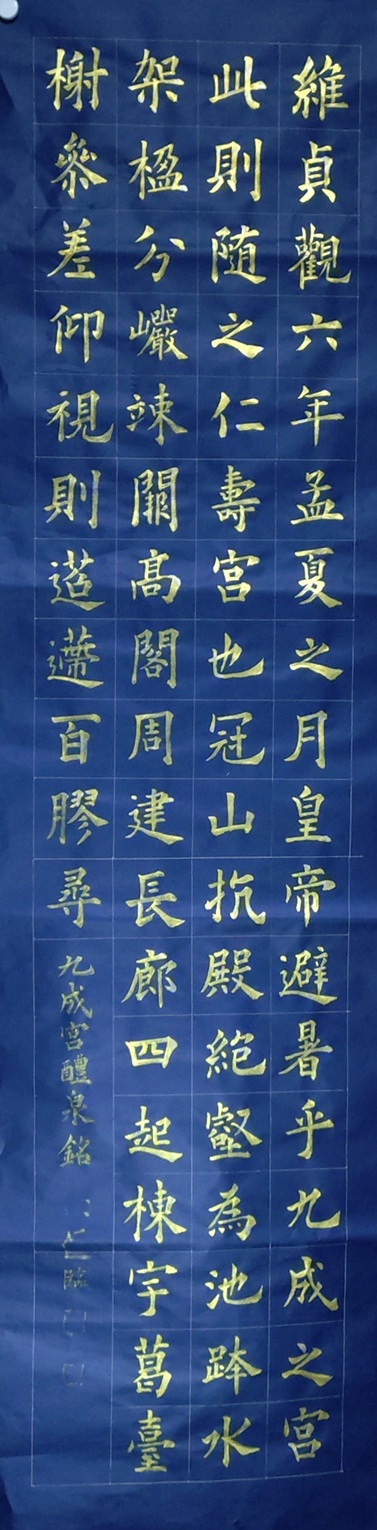 維貞觀六年孟夏之月皇帝避暑乎九成之宮
此則隨之仁壽宮也冠山抗殿絶壑為池跨水
架楹分巖竦闕髙閣周建長廊四起棟宇葛臺
榭參差仰視則迢遰百膠尋
九成宮醴泉銘 臨